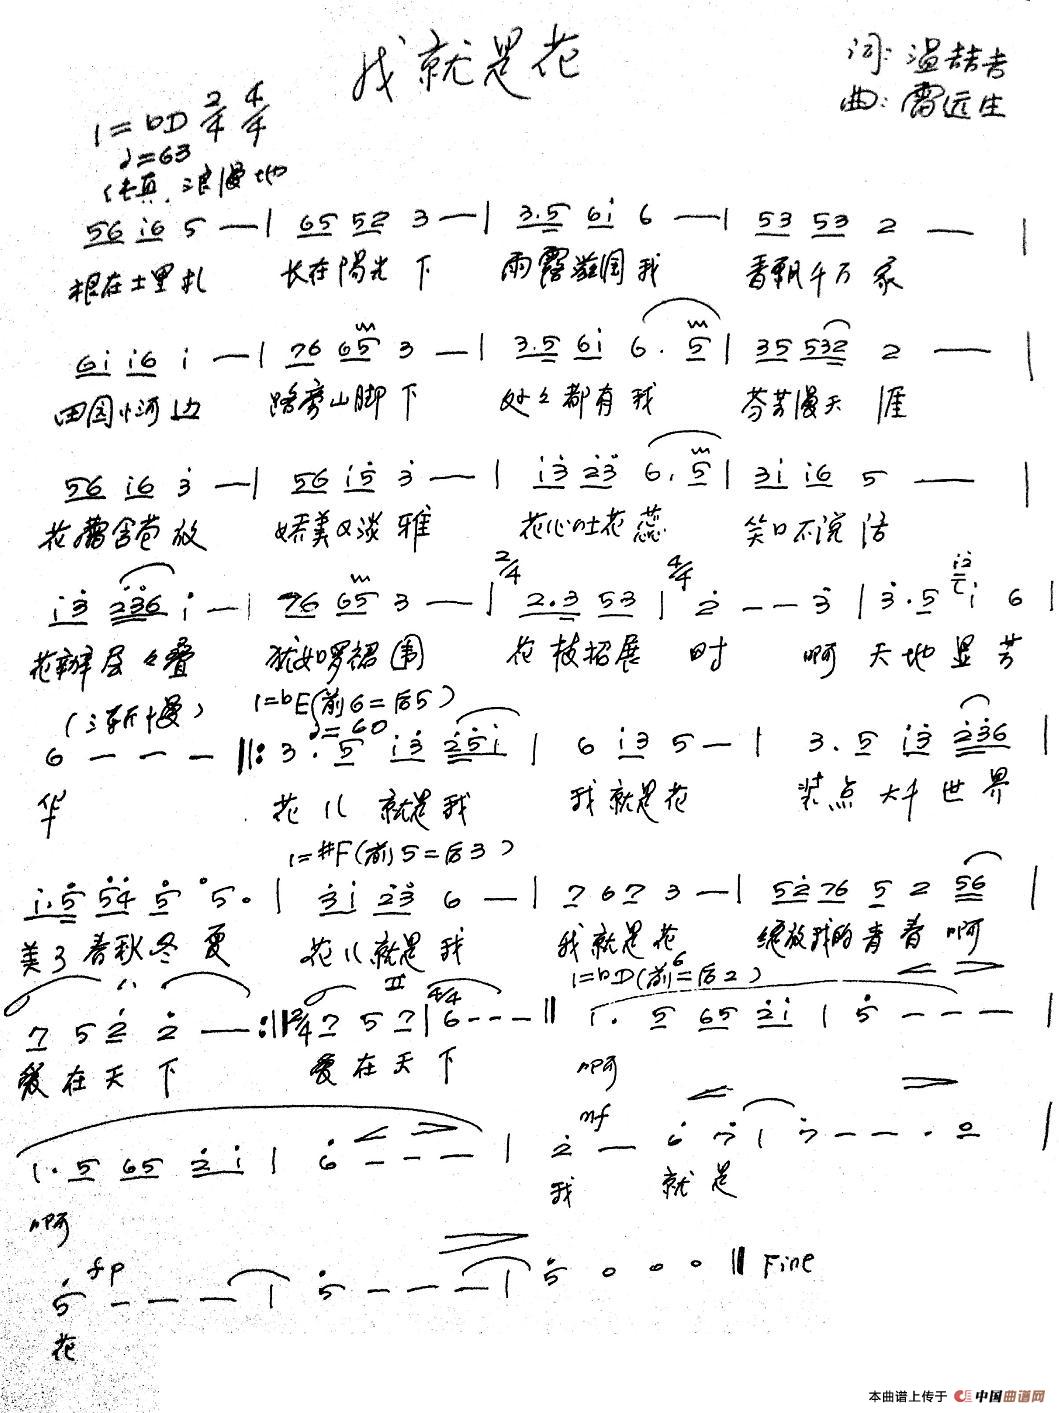 我就是花
词: 温喆吉
曲: 雷远生
1=bD 2/4 4/4
♩=63
纯真 浪漫地
56 i6 5 — | 65 52 3 — | 3.5 6i 6 — | 53 53 2 — |
根在土里扎 长在阳光下 雨露滋润我 香飘千万家
6i i6 i — | 76 65 3 — | 3.5 6i 6. 5 | 35 532 2 — |
田园小河边 路旁山脚下 处々都有我 芬芳漫天涯
56 i6 3 — | 56 i5 3 — | i3 23 6. 5 | 3i i6 5 — |
花蕾含苞放 娇美又淡雅 花心吐花蕊 笑口不说话
i3 236 i — | 76 65 3 — | 2/4 2.3 53 | 4/4 2 — — 3 | 3.5 i2 i 6 |
花瓣层々叠 犹如罗裙围 花枝招展时 啊 天地显芳
(渐慢) 1=bE(前6=后5)
♩=60
6 — — — ‖: 3. 5 i3 25i | 6 i3 5 — | 3. 5 i3 236 |
华 花儿就是我 我就是花 装点大千世界
1=#F(前5=后3)
i.5 54 5 5. | 3i 23 6 — | 7 67 3 — | 52 76 5 2 56 |
美了春秋冬夏 花儿就是我 我就是花 绽放我的青春啊
II 1=bD(前6=后2)
7 5 2 2 — :‖ 2/4 7 5 7 | 4/4 6 - - - ‖ 1. 5 65 2i | 5 — — — |
爱在天下 爱在天下 啊
mf
1. 5 65 2 i | 6 — — — | 2 — 6 7 | 7 — — . 0 |
啊 我 就是
fp
5 — — — | 5 — — — | 5 0 0 0 ‖ Fine
花
本曲谱上传于 中国曲谱网